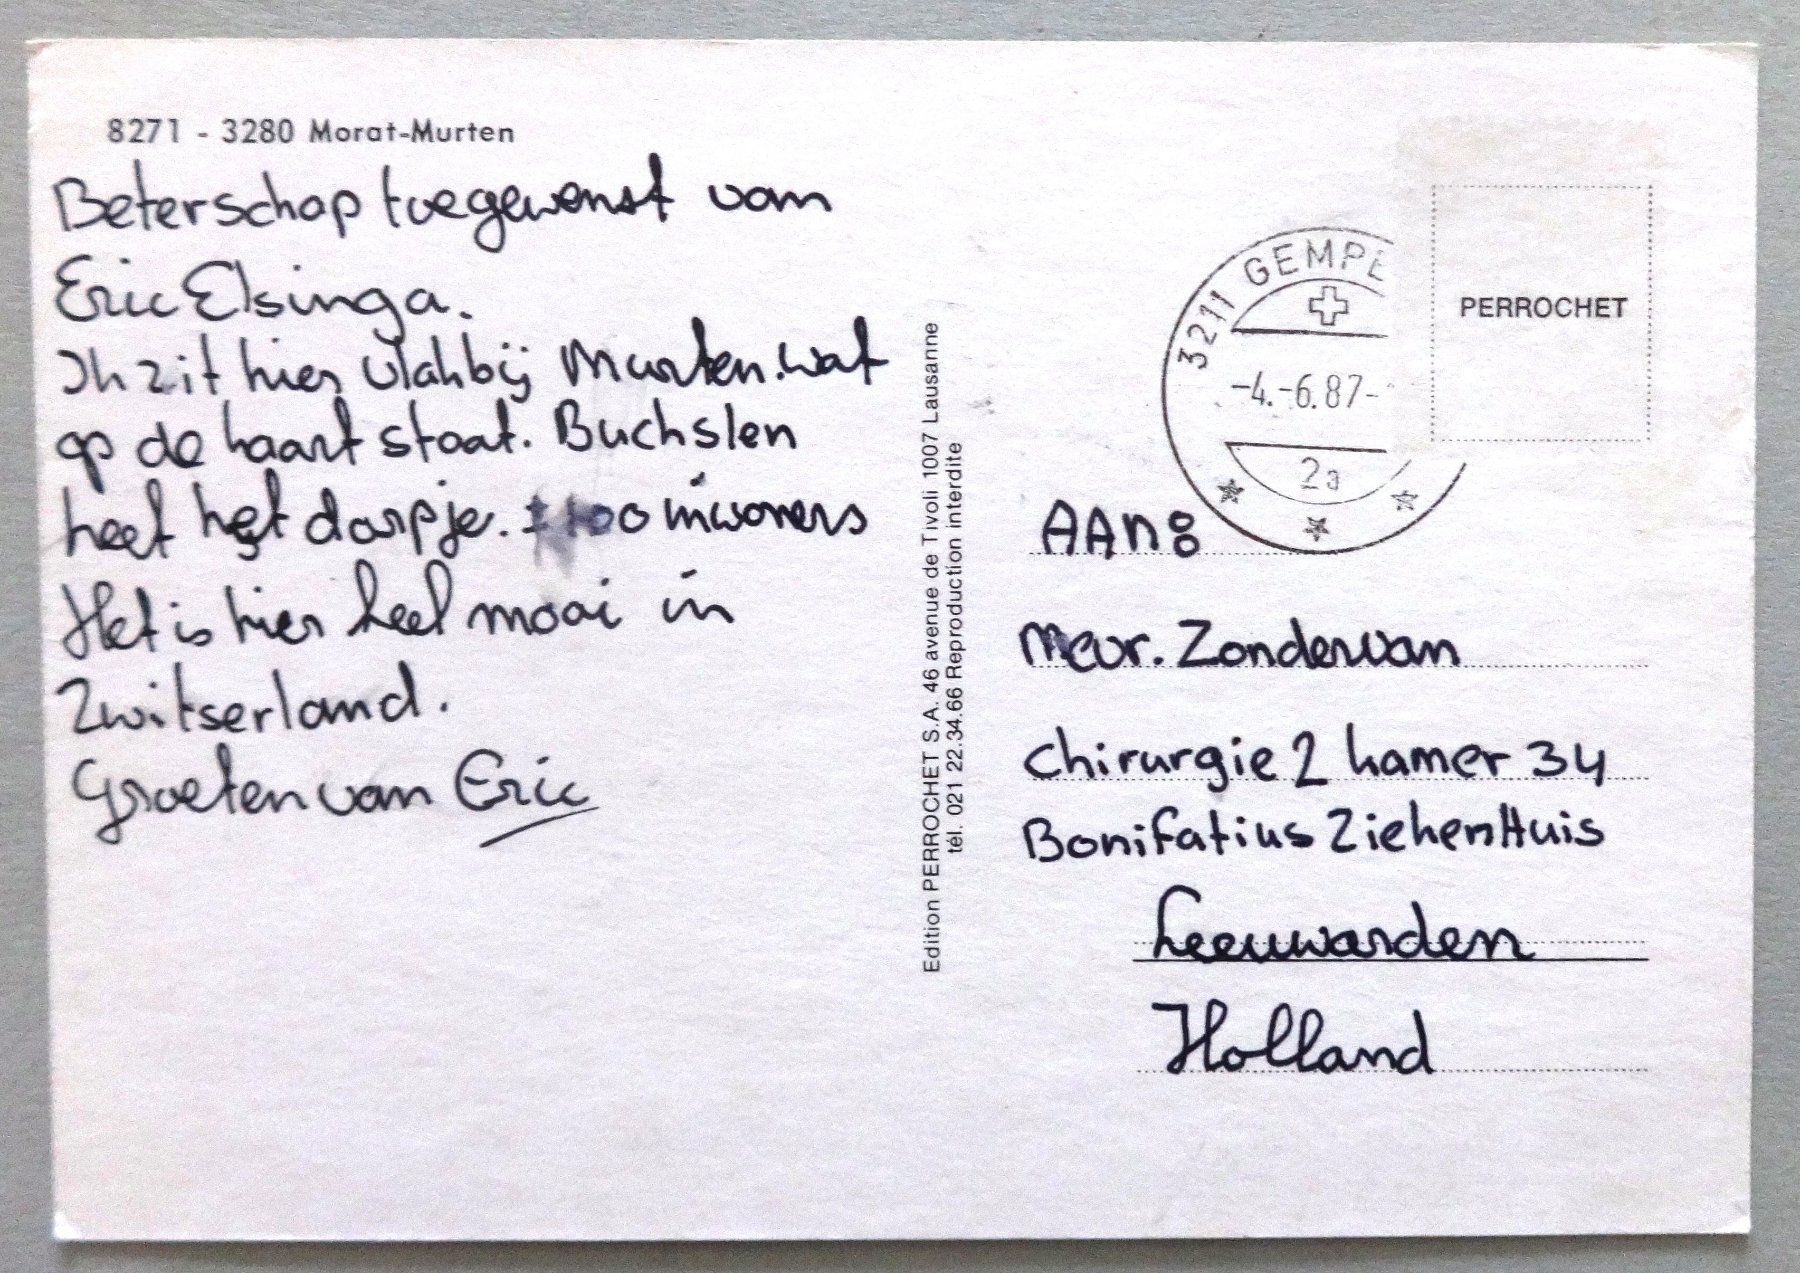 8271 - 3280 Morat-Murten
Beterschap toegewenst van
Eric Elsinga.
Ik zit hier vlakbij Murten. wat
op de kaart staat. Buchslen
heet het dorpje. ± 100 inwoners
Het is hier heel mooi in
Zwitserland.
Groeten van Eric
Edition PERROCHET S.A. 46 avenue de Tivoli 1007 Lausanne
tél. 021 22.34.66 Reproduction interdite
3211 GEMPE
-4.-6.87-
2a
PERROCHET
AAN:
Mevr. Zondervan
Chirurgie 2 kamer 34
Bonifatius ZiekenHuis
Leeuwarden
Holland